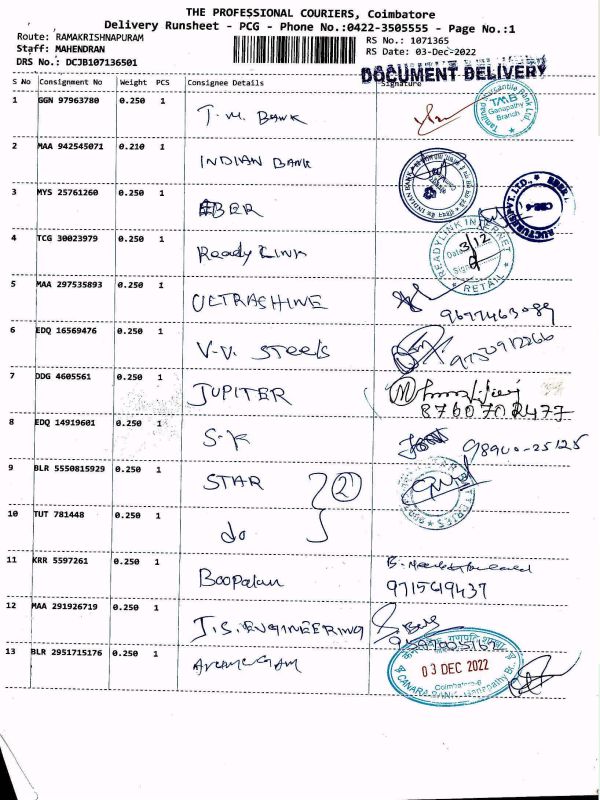 THE PROFESSIONAL COURIERS, Coimbatore
Delivery Runsheet - PCG - Phone No.:0422-3505555 - Page No.:1
Route: RAMAKRISHNAPURAM RS No.: 1071365
Staff: MAHENDRAN RS Date: 03-Dec-2022
DRS No.: DCJB107136501
DOCUMENT DELIVERY
S No Consignment No Weight PCS Consignee Details Signature
1 GGN 97963780 0.250 1 T.M. BANK
Tamilnad Mercantile Bank Ltd. TMB Ganapathy Branch
2 MAA 942545071 0.210 1 INDIAN BANK
INDIAN BANK
3 MYS 25761260 0.250 1 BER
4 TCG 30023979 0.250 1 Ready Link
READYLINK INTERNET Date 3/12 Sign RETAIL
5 MAA 297535893 0.250 1 ULTRASHINE 9677463089
6 EDQ 16569476 0.250 1 V.V. Steels 9750912266
7 DDG 4605561 0.250 1 JUPITER
8760702477
8 EDQ 14919601 0.250 1 S.K 98940-25125
9 BLR 5550815929 0.250 1 STAR 2
10 TUT 781448 0.250 1 do
11 KRR 5597261 0.250 1 Boopalan
9715619437
12 MAA 291926719 0.250 1 J.S. ENGINEERING
13 BLR 2951715176 0.250 1
03 DEC 2022
Coimbatore-6
CANARA BANK, Ganapathy Br.